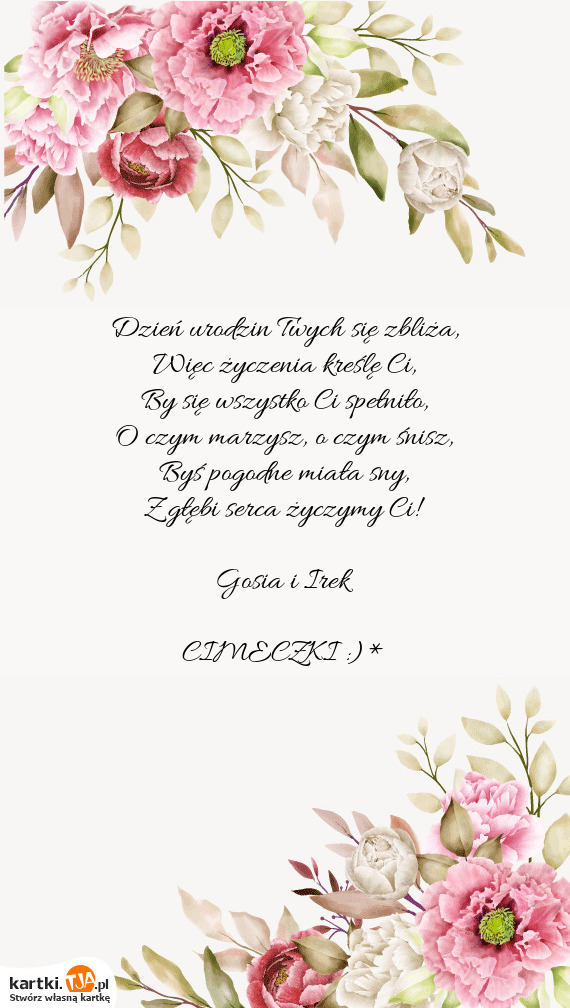 Dzień urodzin Twych się zbliża,
Więc życzenia kreślę Ci,
By się wszystko Ci spełniło,
O czym marzysz, o czym śnisz,
Byś pogodne miała sny,
Z głębi serca życzymy Ci!
Gosia i Irek
CIMECZKI :) *
kartki.TJA.pl
Stwórz własną kartkę